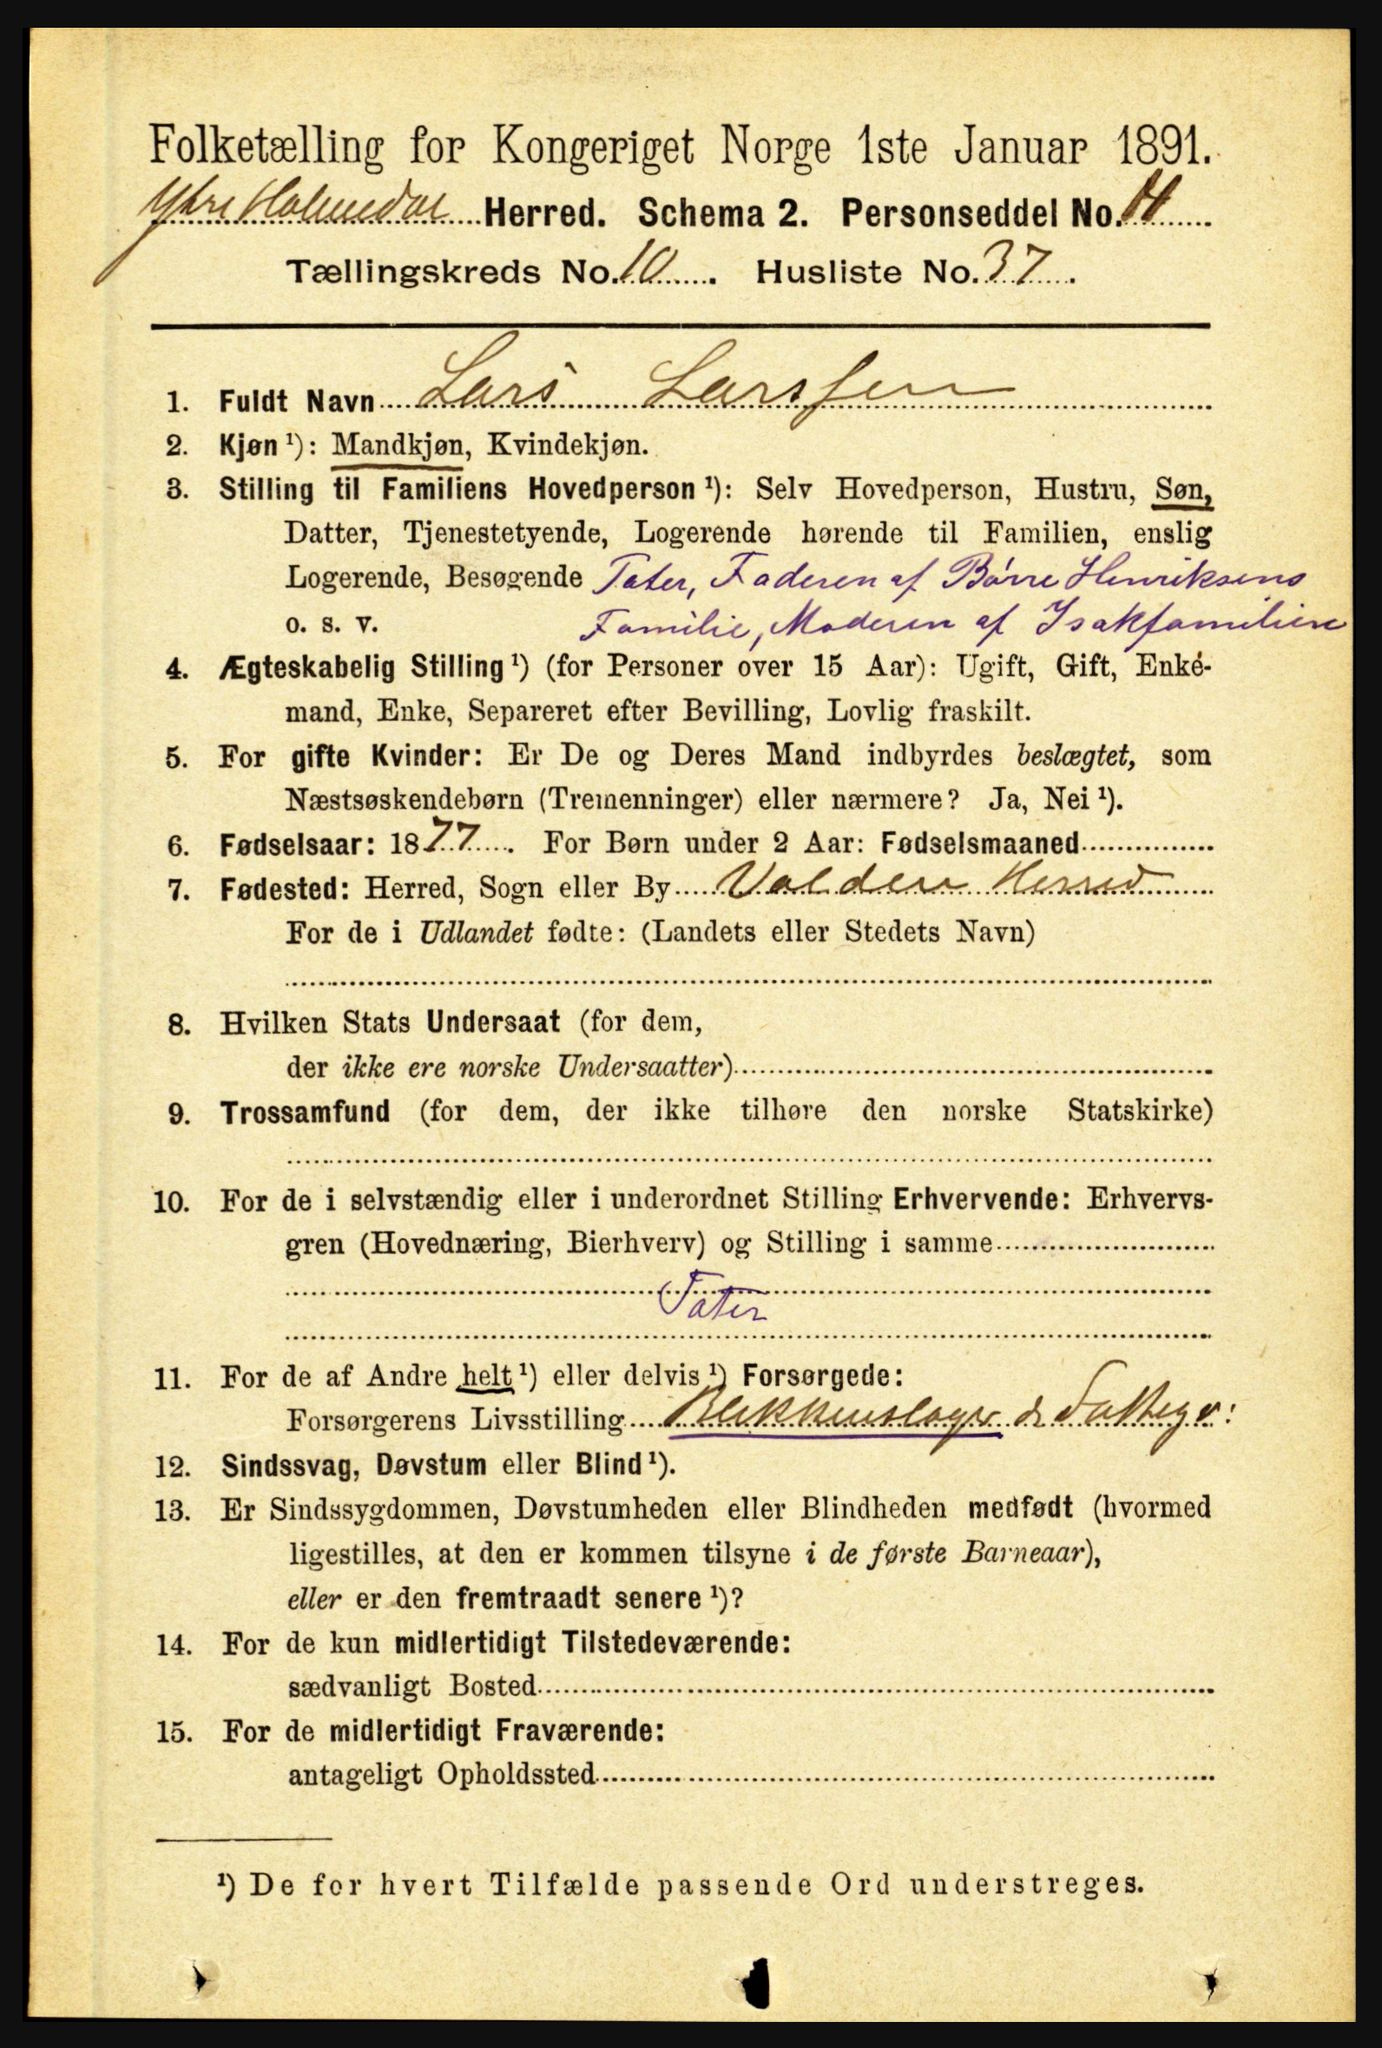 Folketælling for Kongeriget Norge 1ste Januar 1891.
Ytre Holmedal Herred. Schema 2. Personseddel No.
Tællingskreds No. 10. Husliste No. 37.
1. Fuldt Navn Lars Larssen
2. Kjøn ¹): Mandkjøn, Kvindekjøn.
3. Stilling til Familiens Hovedperson ¹): Selv Hovedperson, Hustru, Søn,
Datter, Tjenestetyende, Logerende hørende til Familien, enslig
Logerende, Besøgende Tater, Faderen af Børre Henriksens
o. s. v. Familie, Moderen af Isakfamilien
4. Ægteskabelig Stilling ¹) (for Personer over 15 Aar): Ugift, Gift, Enke-
mand, Enke, Separeret efter Bevilling, Lovlig fraskilt.
5. For gifte Kvinder: Er De og Deres Mand indbyrdes beslægtet, som
Næstsøskendebørn (Tremenninger) eller nærmere? Ja, Nei ¹).
6. Fødselsaar: 1877. For Børn under 2 Aar: Fødselsmaaned
7. Fødested: Herred, Sogn eller By Volden Herred
For de i Udlandet fødte: (Landets eller Stedets Navn)
8. Hvilken Stats Undersaat (for dem,
der ikke ere norske Undersaatter)
9. Trossamfund (for dem, der ikke tilhøre den norske Statskirke)
10. For de i selvstændig eller i underordnet Stilling Erhvervende: Erhvervs-
gren (Hovednæring, Bierhverv) og Stilling i samme
Tater
11. For de af Andre helt ¹) eller delvis ¹) Forsørgede:
Forsørgerens Livsstilling Blikkenslager
12. Sindssvag, Døvstum eller Blind ¹).
13. Er Sindssygdommen, Døvstumheden eller Blindheden medfødt (hvormed
ligestilles, at den er kommen tilsyne i de første Barneaar),
eller er den fremtraadt senere ¹)?
14. For de kun midlertidigt Tilstedeværende:
sædvanligt Bosted
15. For de midlertidigt Fraværende:
antageligt Opholdssted
¹) De for hvert Tilfælde passende Ord understreges.